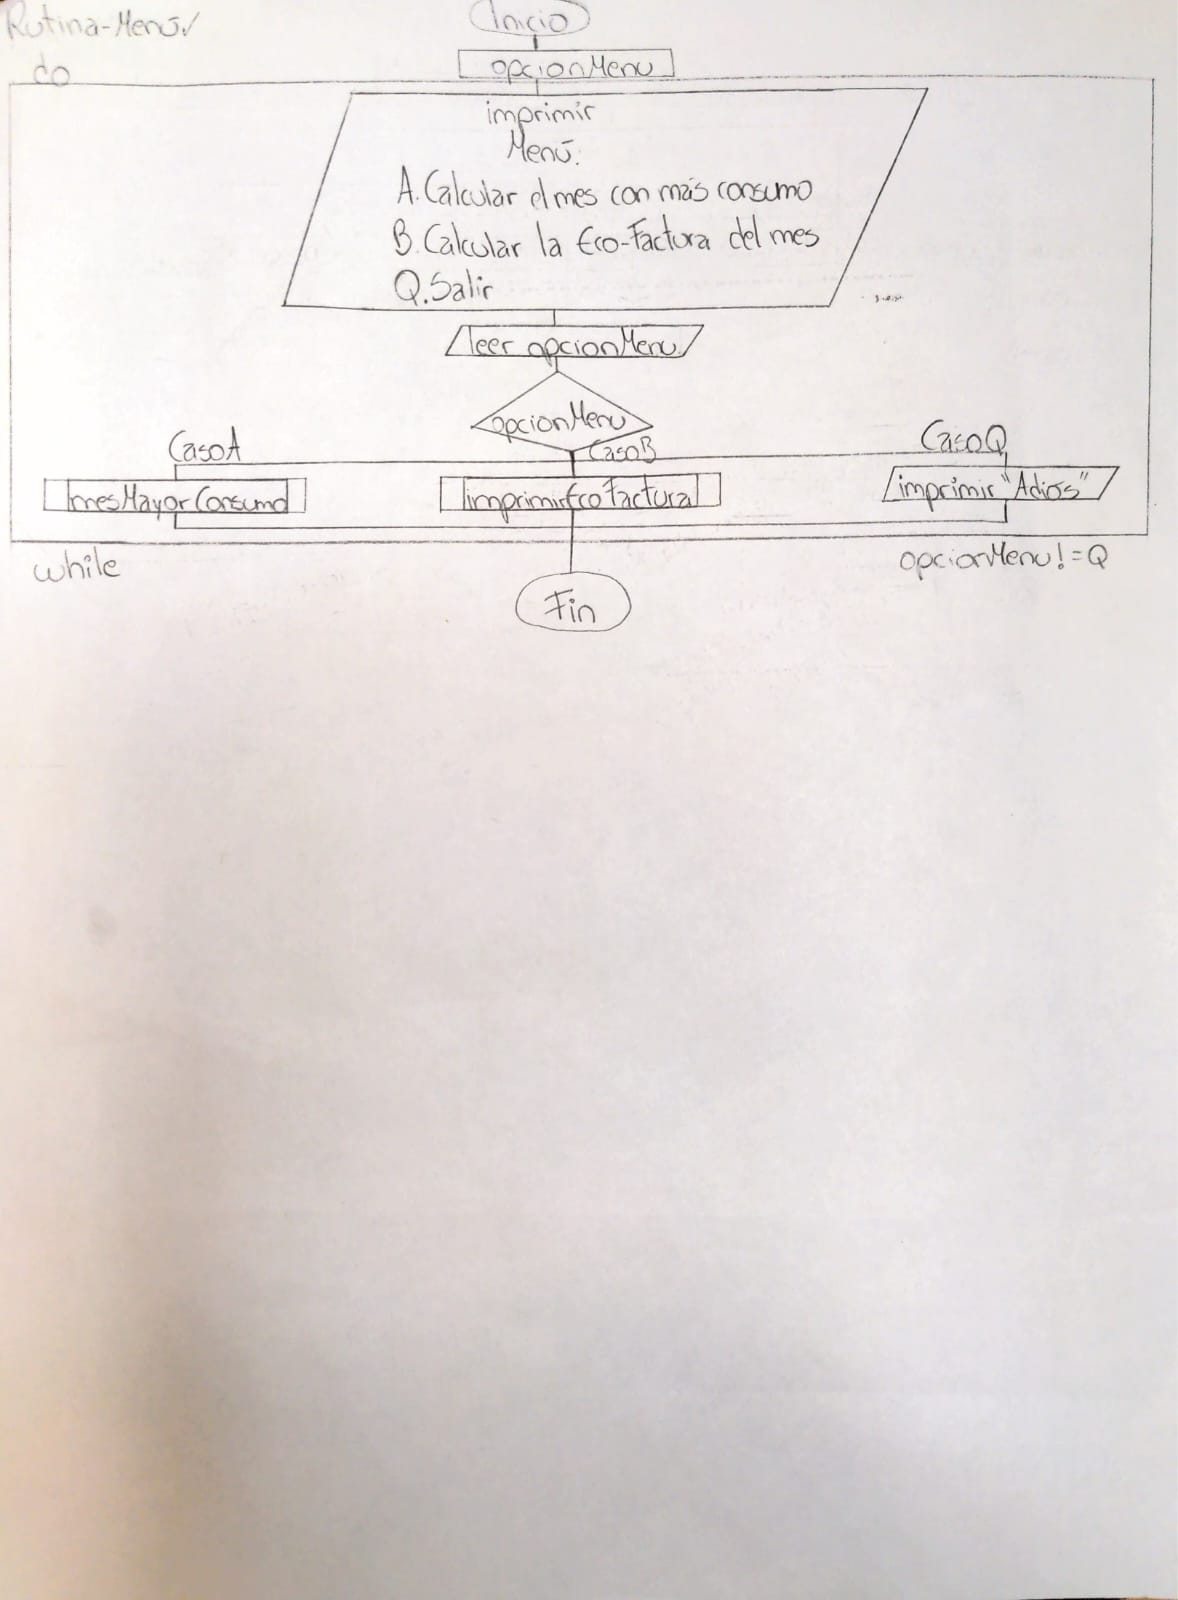 Rutina-Menú
Inicio
do
opcionMenu
imprimir
Menú:
A. Calcular el mes con más consumo
B. Calcular la Eco-Factura del mes
Q. Salir
leer opcionMenu
opcionMenu
CasoA
CasoB
CasoQ
mesMayorConsumo
imprimirEcoFactura
imprimir "Adiós"
while
opcionMenu!=Q
Fin